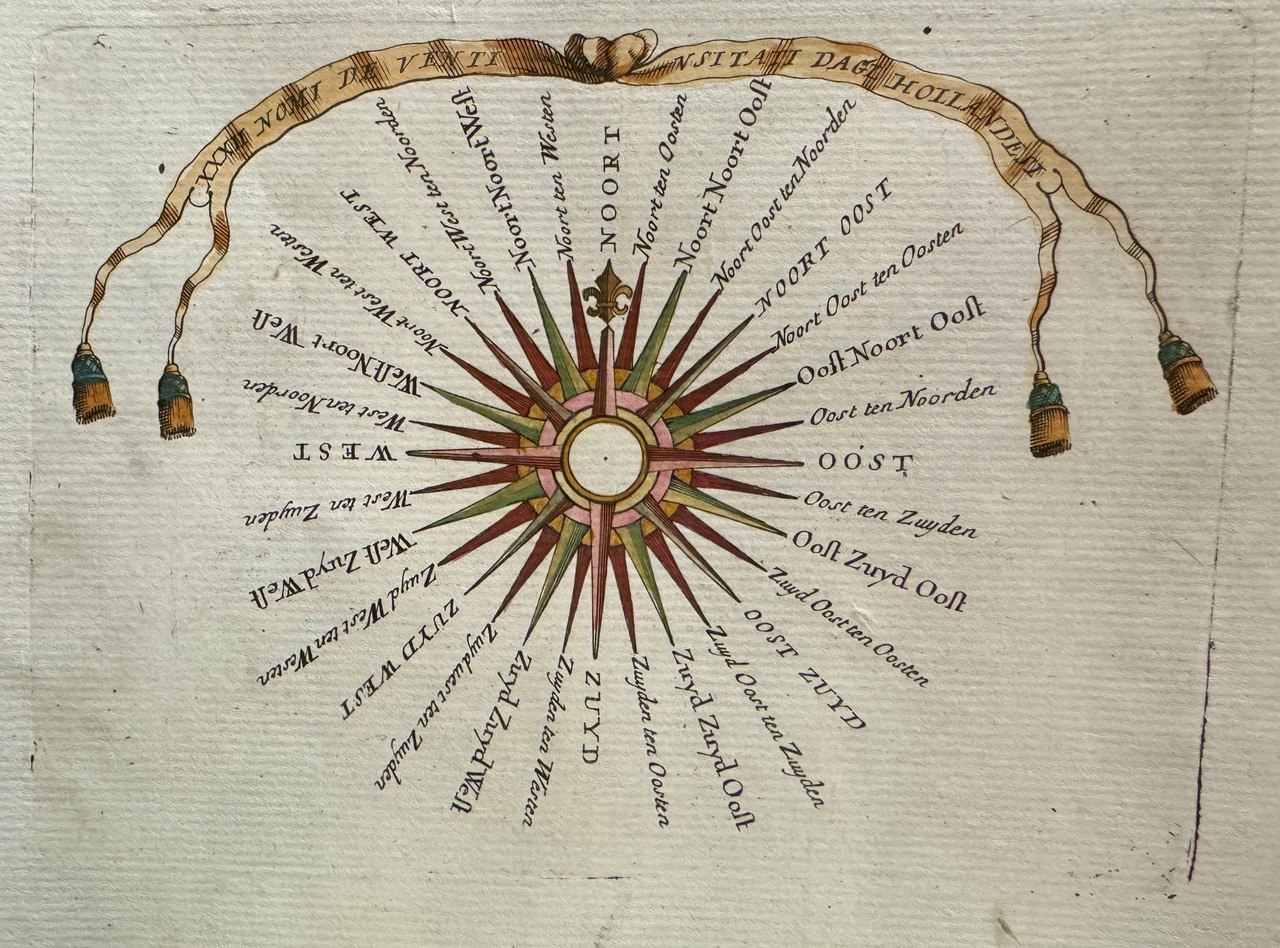 XXXII NOMI DE VENTI NSITATI DAGL HOLLANDESI
NOORT
Noort ten Oosten
Noort Noort Ooſt
Noort Oost ten Noorden
NOORT OOST
Noort Oost ten Oosten
Ooſt Noort Ooſt
Oost ten Noorden
OOST
Oost ten Zuyden
Ooſt Zuyd Ooſt
Zuyd Oost ten Oosten
OOST ZUYD
Zuyd Oost ten Zuyden
Zuyd Zuyd Ooſt
Zuyden ten Oosten
ZUYD
Zuyden ten Westen
Zuyd Zuyd Weſt
Zuyduest ten Zuyden
ZUYD WEST
Zuyd West ten Westen
Weſt Zuyd Weſt
West ten Zuyden
WEST
West ten Noorden
Weſt Noort Weſt
Noort West ten Westen
NOORT WEST
Noort West ten Noorden
Noort Noort Weſt
Noort ten Westen